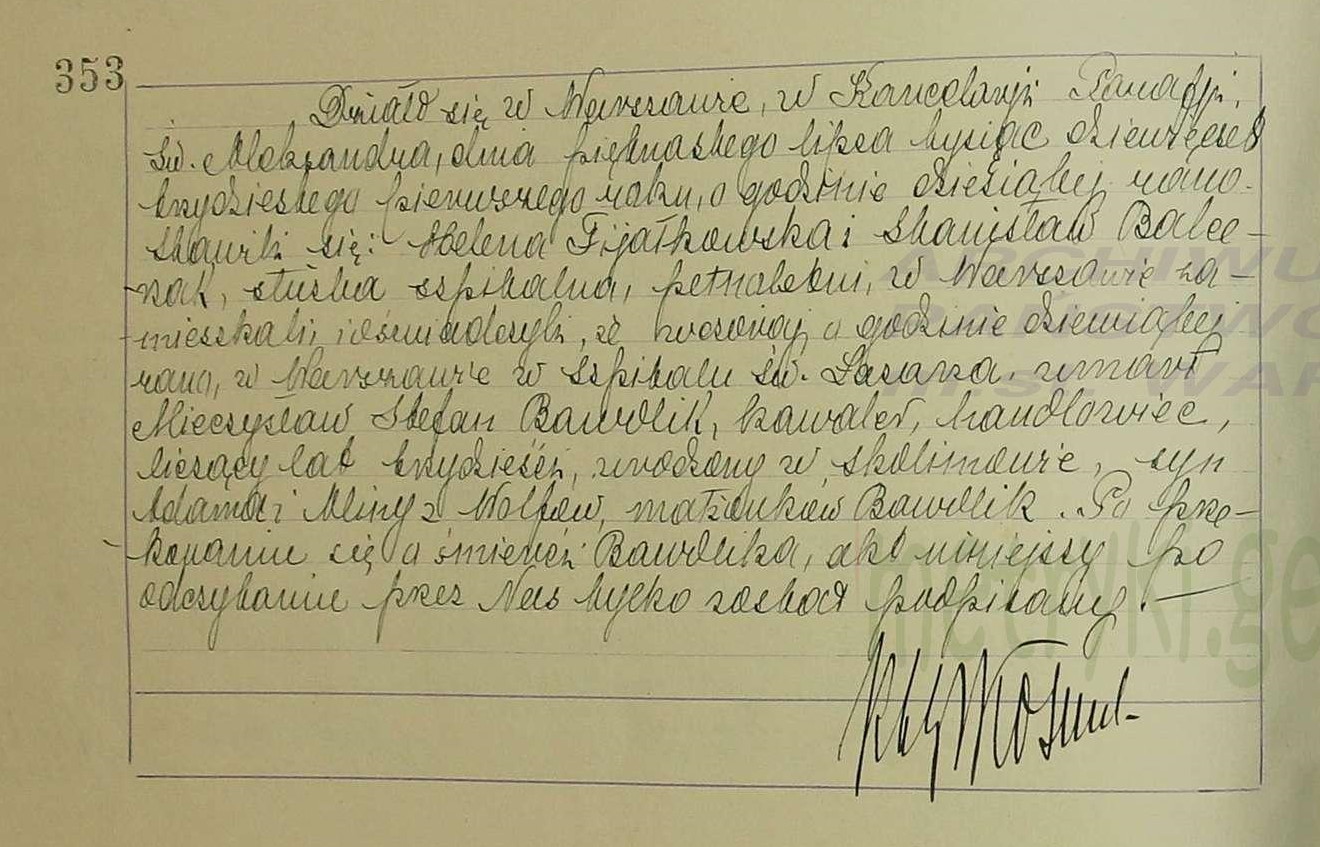 353
Działo się w Warszawie, w Kancelaryi Parafji
św. Aleksandra, dnia piętnastego lipca tysiąc dziewięćset
trzydziestego pierwszego roku, o godzinie dziesiątej rano.
Stawili się: Helena Fijałkowska i Stanisław Balce-
rzak, służba szpitalna, pełnoletni, w Warszawie za-
mieszkali, i oświadczyli, że wczoraj o godzinie dziewiątej
rano, w Warszawie w szpitalu św. Łazarza, umarł
Mieczysław Stefan Bawolik, kawaler, handlowiec,
liczący lat trzydzieści, urodzony w Skolimowie, syn
Adama i Aliny z Wolfów, małżonków Bawolik. Po prze-
konaniu się o śmierci Bawolika, akt niniejszy po
odczytaniu przez Nas tylko został podpisany. —
ARCHIWU
PAŃSTWO
WAR
metryki.ge